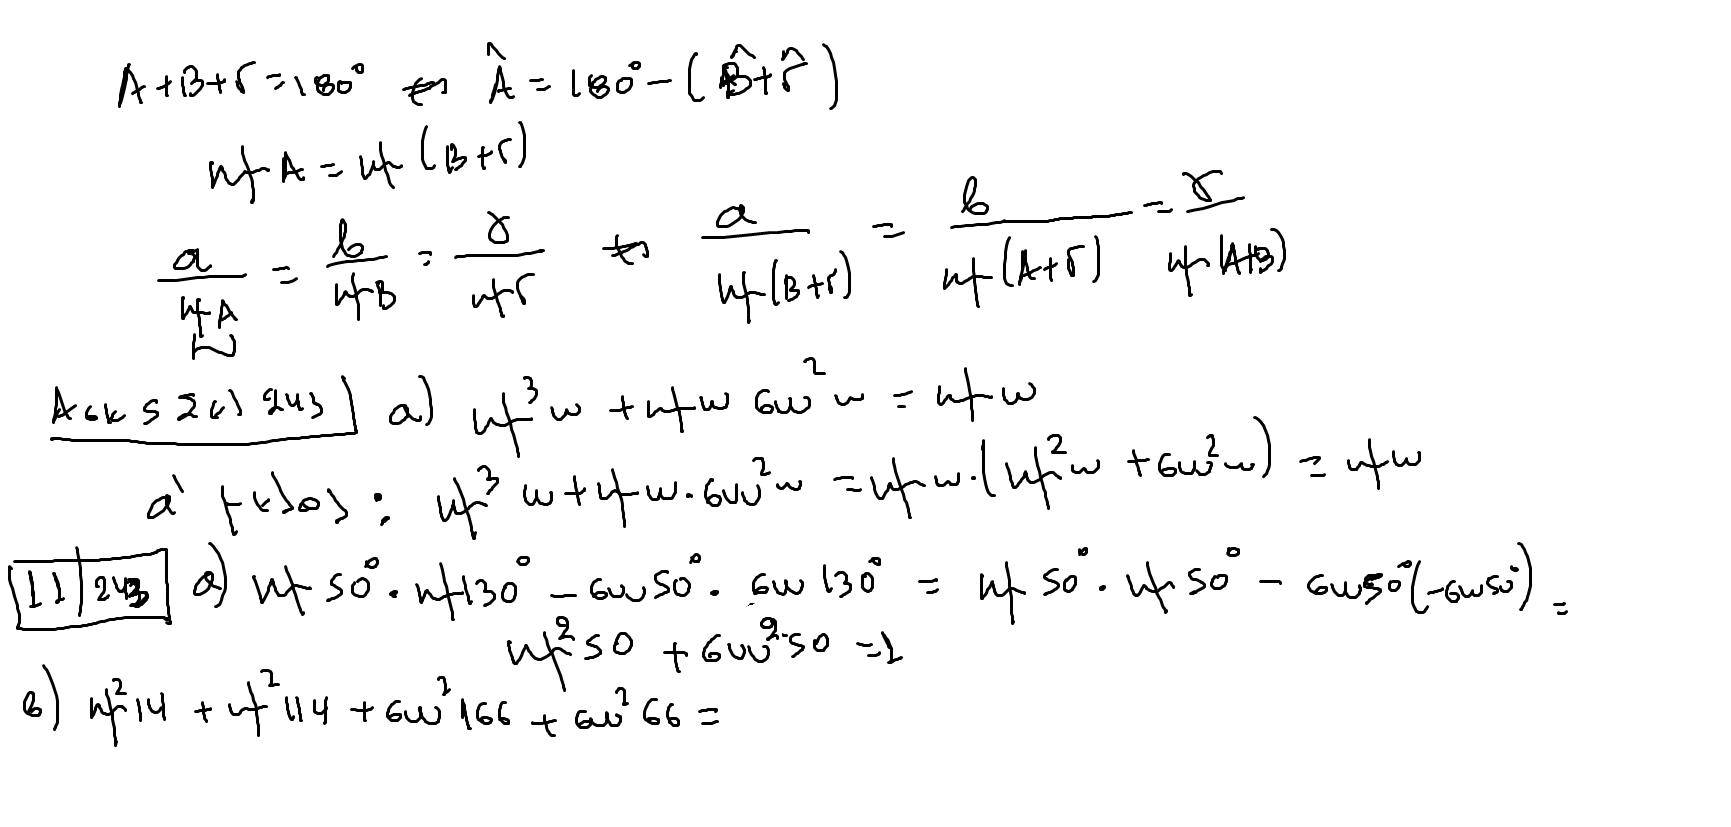 Α+Β+Γ=180° ⇔ Â = 180° - (Β̂+Γ̂)
ημΑ = ημ(Β+Γ)
α/ημΑ = β/ημΒ = γ/ημΓ ⇔ α/ημ(Β+Γ) = β/ημ(Α+Γ) = γ/ημ(Α+Β)
Ασκ 5 σελ 243 α) ημ³ω + ημω συν²ω = ημω
α' μελος: ημ³ω + ημω·συν²ω = ημω·(ημ²ω + συν²ω) = ημω
11|243 α) ημ50°·ημ130° - συν50°·συν130° = ημ50°·ημ50° - συν50°(-συν50°) =
ημ²50 + συν²50 = 1
β) ημ²14 + ημ²114 + συν²166 + συν²66 =